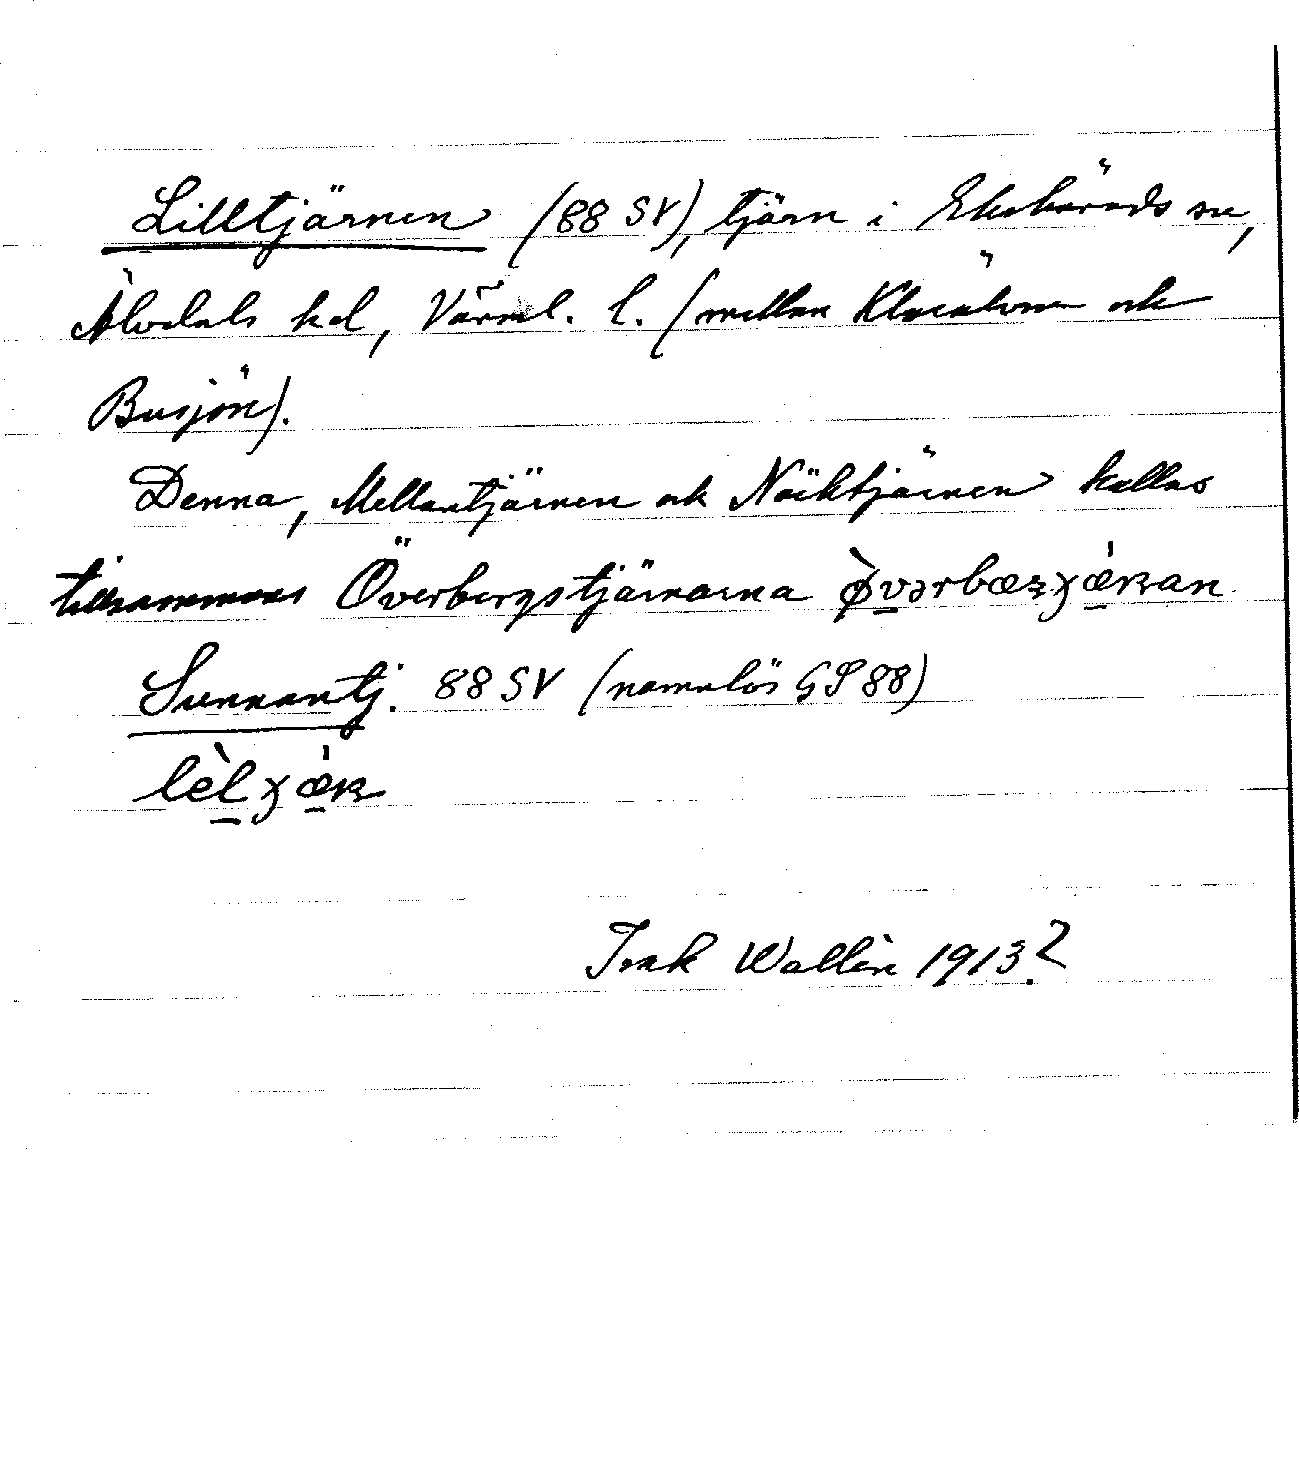 Lilltjärnen (88 SV), tjärn i Ekshärads sn,
Älvdals hd, Värml. l. (mellan Klarälven ock
Busjön).
Denna, Mellantjärnen ock Näcktjärnen kallas
tillsammans Överbergstjärnarna
Sunnantj. 88 SV (namnlös GS 88)
Isak Wallin 1913?